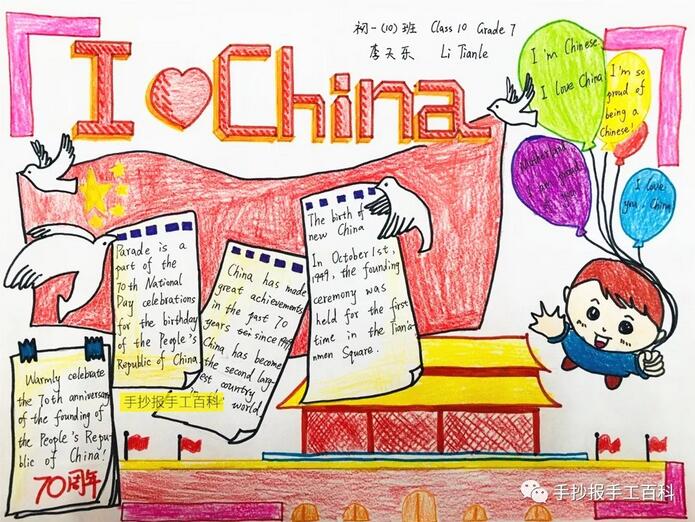 初一(10)班 Class 10 Grade 7
李天乐 Li Tianle
I China
I'm Chinese.
I love China
I'm so
proud of
being a
Chinese!
Motherland
I am proud
of you!
I love
you, China
Parade is a
part of the
70th National
Day celebrations
for the birthday
of the People's
Republic of China.
China has made
great achievements
in the past 70
years since 1949
China has become
the second larg-
est country
in the world.
The birth of
new China
In October 1st,
1949, the founding
ceremony was
held for the first
time in the Tian'a-
nmen Square.
Warmly celebrate
the 70th anniversary
of the founding of
the People's Repu-
blic of China!
70周年
手抄报手工百科
手抄报手工百科